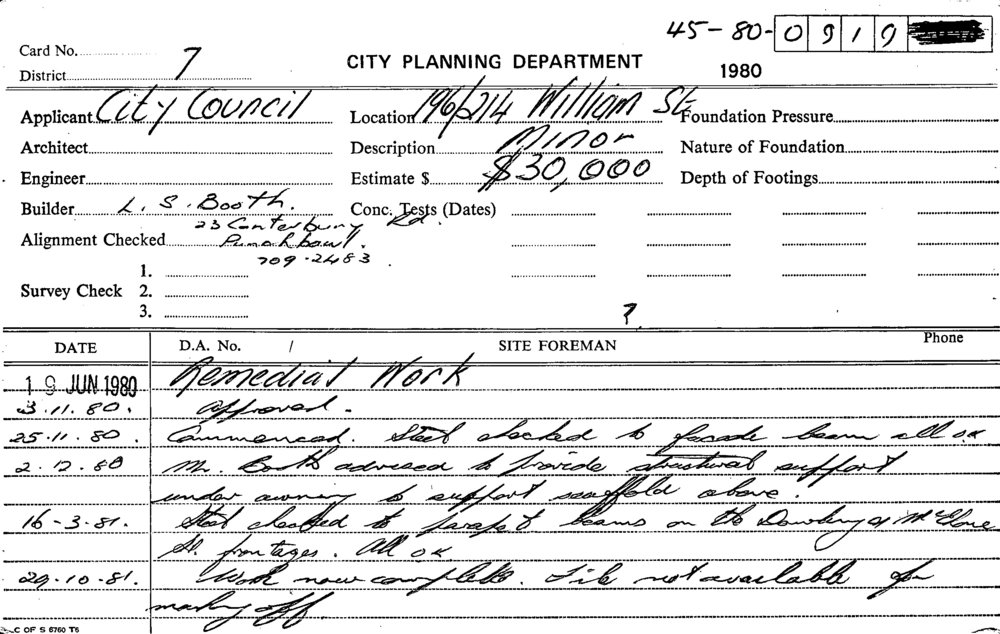 45-80-0919
Card No.
District 7
CITY PLANNING DEPARTMENT
1980
Applicant City Council
Location 196/214 William St.
Foundation Pressure
Architect
Description Minor
Nature of Foundation
Engineer
Estimate $ $30,000
Depth of Footings
Builder L. S. Booth.
Conc. Tests (Dates)
23 Canterbury Rd.
Alignment Checked Punchbowl.
709-2483
1.
Survey Check 2.
3.
?
DATE D.A. No. / SITE FOREMAN Phone
19 JUN 1980 Remedial Work
3.11.80. approved.
25.11.80. Commenced. Steel checked to facade beam all OK
2.12.80 Mr. Booth advised to provide structural support
under awning to support scaffold above.
16-3-81. Steel checked to parapet beams on the Dowling &
St. frontages. All OK
29.10.81. Work now complete. File not available for
marking off.
C OF S 6760 T6